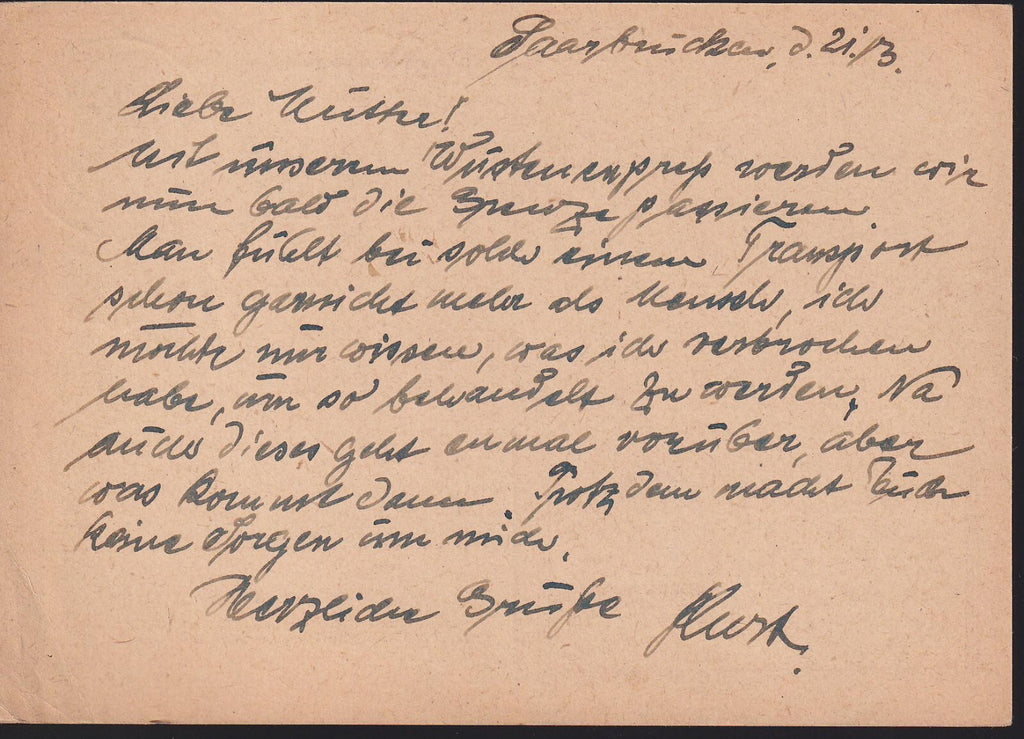 Saarbrücken, d. 21./3.
Liebe Mutter!
Mit unserem Wüstenexpreß werden wir
nun bald die Grenze passieren.
Man fühlt bei solch einem Transport
schon garnicht mehr als Mensch, ich
möchte nur wissen, was ich verbrochen
habe, um so behandelt zu werden. Na
auch dieses geht einmal vorüber, aber
was kommt dann. Trotzdem macht Euch
keine Sorgen um mich.
Herzliche Grüße Kurt.